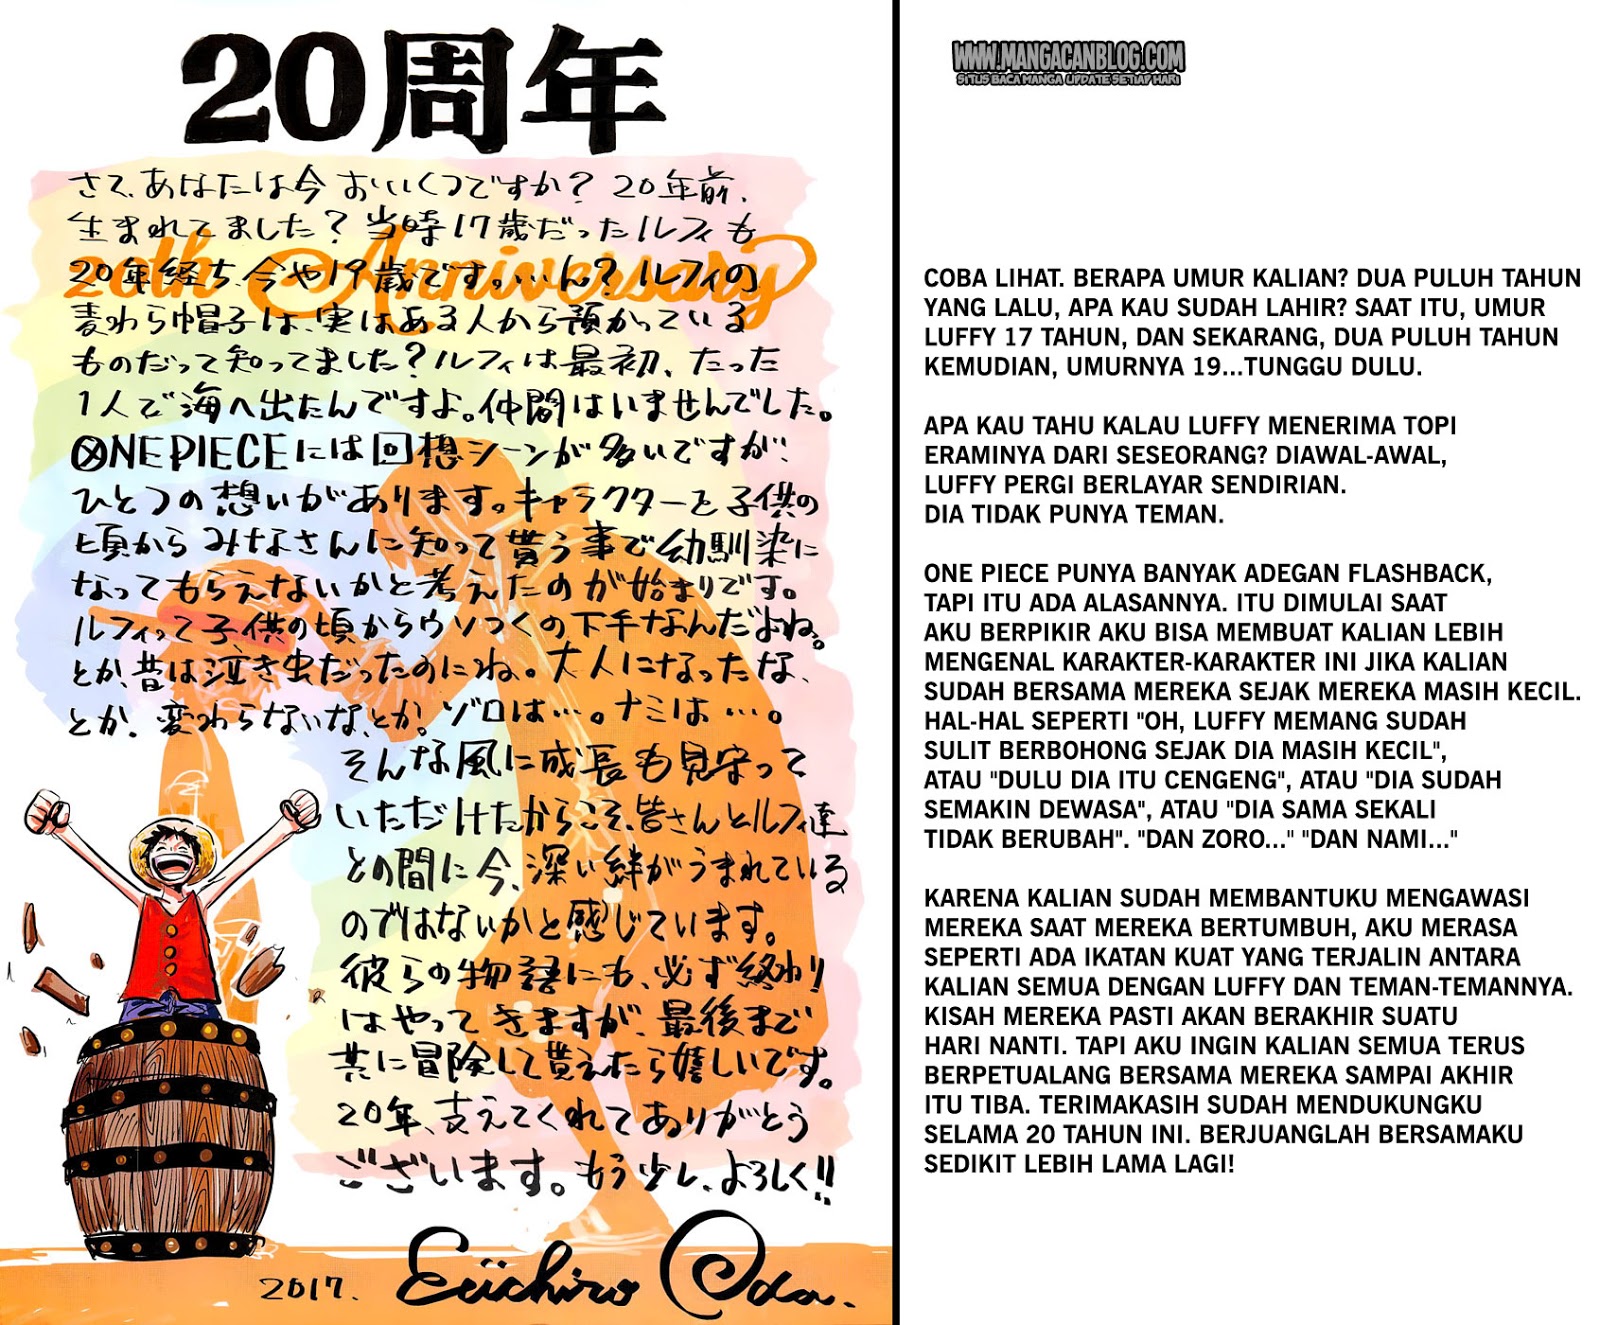 20周年
さて、あなたは今おいくつですか？20年前、
生まれてました？当時17歳だったルフィも
20th Anniversary
20年経ち、今や19歳です。…ん？ルフィの
麦わら帽子は、実はある人から預かっている
ものだって知ってました？ルフィは最初、たった
1人で海へ出たんですよ。仲間はいませんでした。
ONE PIECEには回想シーンが多いですが、
ひとつの想いがあります。キャラクターを子供の
頃からみなさんに知って貰う事で幼馴染に
なってもらえないかと考えたのが始まりです。
ルフィって子供の頃からウソつくの下手なんだよね。
とか、昔は泣き虫だったのにね。大人になったな、
とか、変わらないな、とか。ゾロは…。ナミは…。
そんな風に成長も見守って
いただけたからこそ、皆さんとルフィ達
との間に今、深い絆がうまれている
のではないかと感じています。
彼らの物語にも、必ず終わり
はやってきますが、最後まで
共に冒険して貰えたら嬉しいです。
20年、支えてくれてありがとう
ございます。もう少し、よろしく!!
2017. Eiichiro Oda.
WWW.MANGACANBLOG.COM
SITUS BACA MANGA UPDATE SETIAP HARI
COBA LIHAT. BERAPA UMUR KALIAN? DUA PULUH TAHUN
YANG LALU, APA KAU SUDAH LAHIR? SAAT ITU, UMUR
LUFFY 17 TAHUN, DAN SEKARANG, DUA PULUH TAHUN
KEMUDIAN, UMURNYA 19...TUNGGU DULU.
APA KAU TAHU KALAU LUFFY MENERIMA TOPI
ERAMINYA DARI SESEORANG? DIAWAL-AWAL,
LUFFY PERGI BERLAYAR SENDIRIAN.
DIA TIDAK PUNYA TEMAN.
ONE PIECE PUNYA BANYAK ADEGAN FLASHBACK,
TAPI ITU ADA ALASANNYA. ITU DIMULAI SAAT
AKU BERPIKIR AKU BISA MEMBUAT KALIAN LEBIH
MENGENAL KARAKTER-KARAKTER INI JIKA KALIAN
SUDAH BERSAMA MEREKA SEJAK MEREKA MASIH KECIL.
HAL-HAL SEPERTI "OH, LUFFY MEMANG SUDAH
SULIT BERBOHONG SEJAK DIA MASIH KECIL",
ATAU "DULU DIA ITU CENGENG", ATAU "DIA SUDAH
SEMAKIN DEWASA", ATAU "DIA SAMA SEKALI
TIDAK BERUBAH". "DAN ZORO..." "DAN NAMI..."
KARENA KALIAN SUDAH MEMBANTUKU MENGAWASI
MEREKA SAAT MEREKA BERTUMBUH, AKU MERASA
SEPERTI ADA IKATAN KUAT YANG TERJALIN ANTARA
KALIAN SEMUA DENGAN LUFFY DAN TEMAN-TEMANNYA.
KISAH MEREKA PASTI AKAN BERAKHIR SUATU
HARI NANTI. TAPI AKU INGIN KALIAN SEMUA TERUS
BERPETUALANG BERSAMA MEREKA SAMPAI AKHIR
ITU TIBA. TERIMAKASIH SUDAH MENDUKUNGKU
SELAMA 20 TAHUN INI. BERJUANGLAH BERSAMAKU
SEDIKIT LEBIH LAMA LAGI!